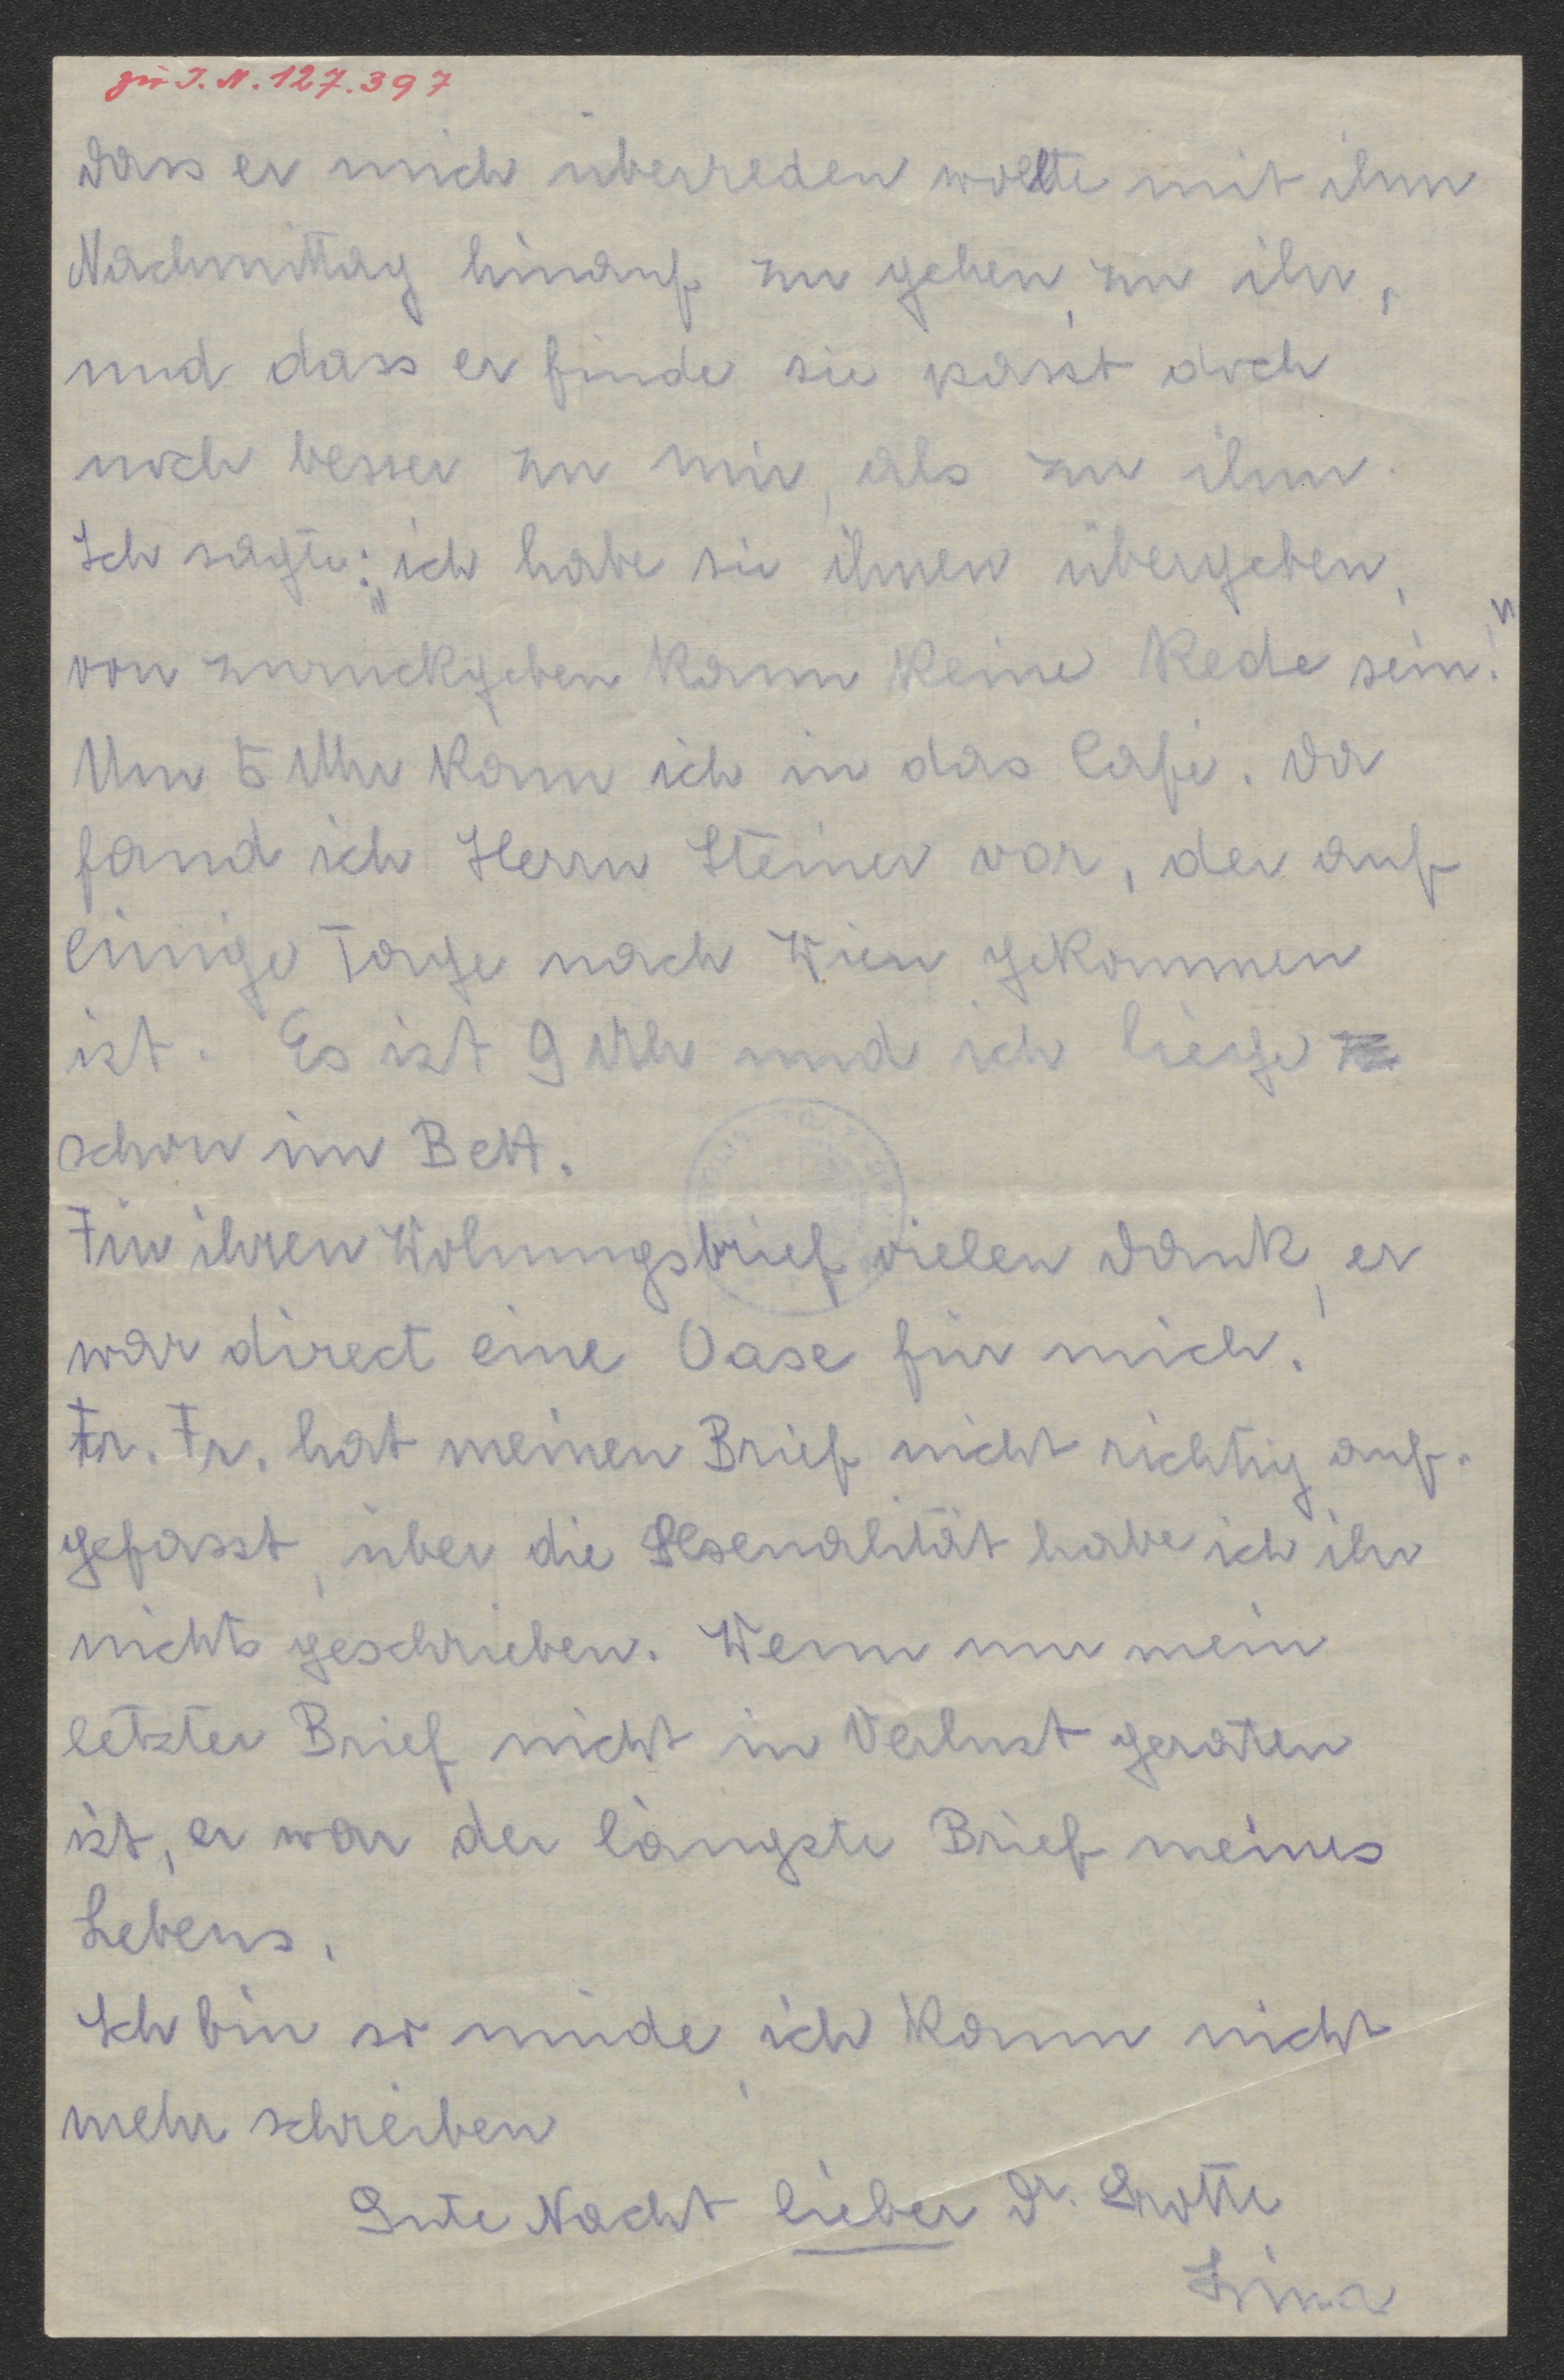 zu I.N. 127.397
dass er mich überreden wollte mit ihm
Nachmittag hinauf zu gehen, zu ihr,
und dass er finde sie passt doch
noch besser zu mir, als zu ihm.
Ich sagte: „ich habe sie ihnen übergeben,
von zurückgeben kann keine Rede sein!"
Um 5 Uhr kam ich in das Café. Da
fand ich Herrn Steiner vor, der auf
einige Tage nach Wien gekommen
ist. Es ist 9 Uhr und ich liege
schon im Bett.
Für ihren Wohnungsbrief vielen Dank, er
war direct eine Oase für mich.
Fr. Fr. hat meinen Brief nicht richtig auf-
gefasst, über die habe ich ihr
nichts geschrieben. Wenn nur mein
letzter Brief nicht in Verlust geraten
ist, er war der längste Brief meines
Lebens.
Ich bin so müde, ich kann nicht
mehr schreiben
Gute Nacht lieber Dr. Grotte